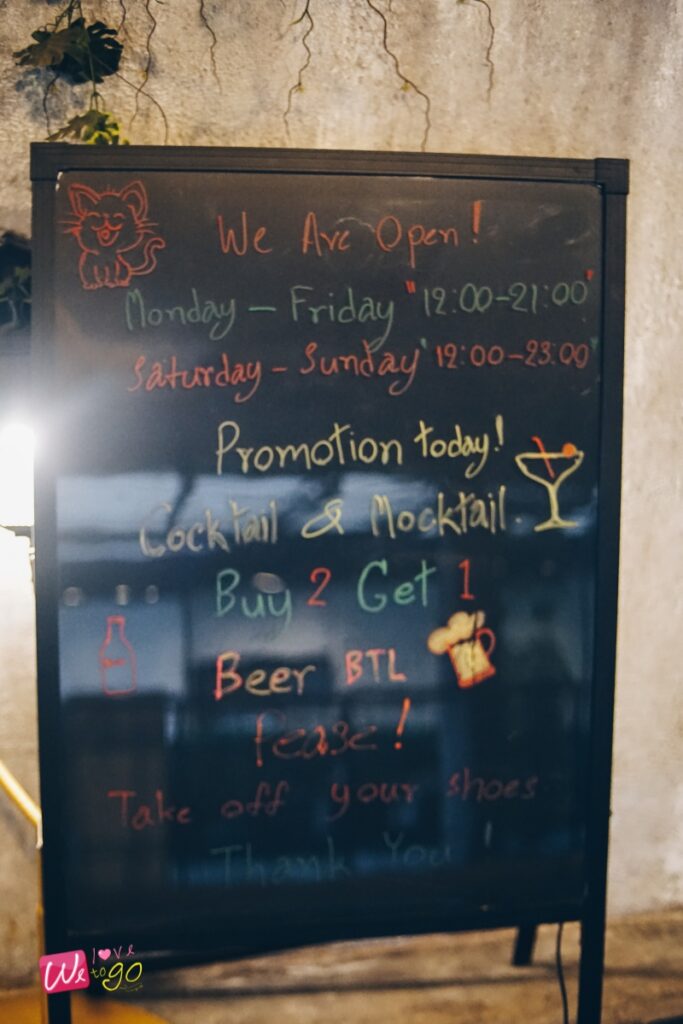 We Are Open!
Monday - Friday "12:00-21:00"
Saturday - Sunday "12:00-23:00"
Promotion today!
Cocktail & Mocktail.
Buy 2 Get 1
Beer BTL
Pease!
Take off your shoes
Thank You!
We love to go